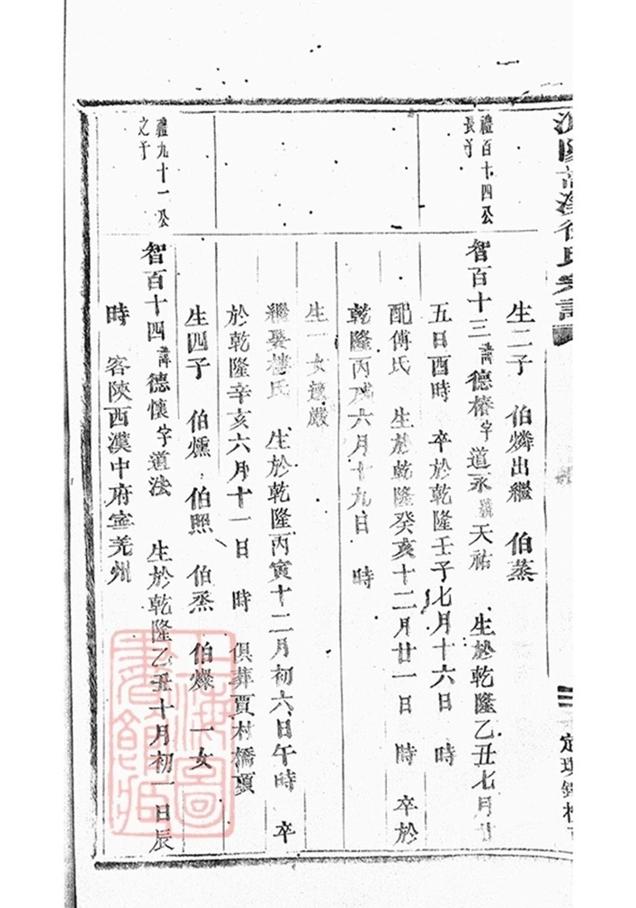 生二子 伯燐出繼 伯蒸
禮百十四公
長子
智百十三 諱德椿字道永號天祐 生於乾隆乙丑七月廿
五日酉時 卒於乾隆壬子七月十六日 時
配傅氏 生於乾隆癸亥十二月廿一日 時 卒於
乾隆丙戌六月十九日 時
生一女適嚴
繼娶樓氏 生於乾隆丙寅十二月初六日午時 卒
於乾隆辛亥六月十一日 時 俱葬賈村橋頭
生四子 伯燻 伯照 伯烝 伯燦 一女
禮九十一公
之子
智百十四諱德懷字道法 生於乾隆乙丑十月初一日辰
時 客陝西漢中府寧羌州